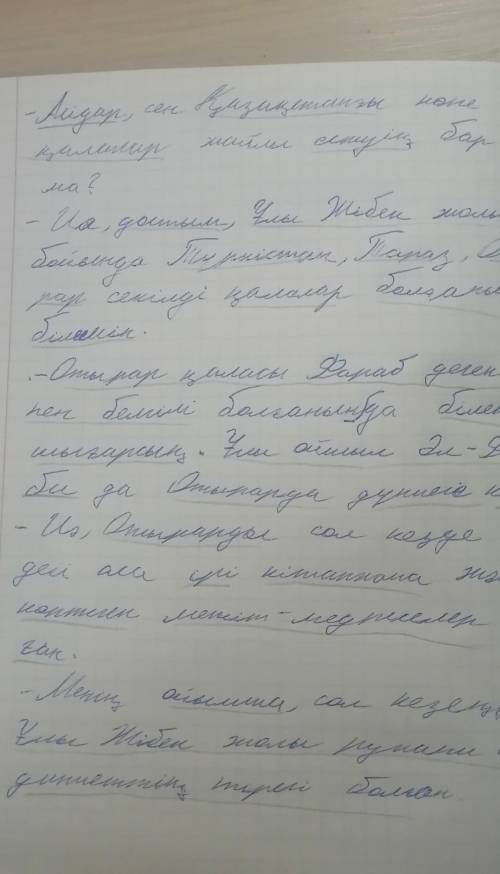 - Айдар, сен Қазақстанғы көне
қалалар жайлы естуің бар
ма?
- Иә, достым, Ұлы Жібек жолы
бойында Түркістан, Тараз, О
рар секілді қалалар болғаны
білемін.
- Отырар қаласы Фараб деген
пен белгілі болғанында білең
шығарсың. Ұлы ойшыл Әл-Ф
би да Отырарда дүниеге к
- Иә, Отырарды сол кезде
дей аса ірі кітапхана жә
көптеген мешіт-медреселер
ған.
- Менің ойымша, сол кезең
Ұлы Жібек жолы рухани
диметтің тірегі болған.